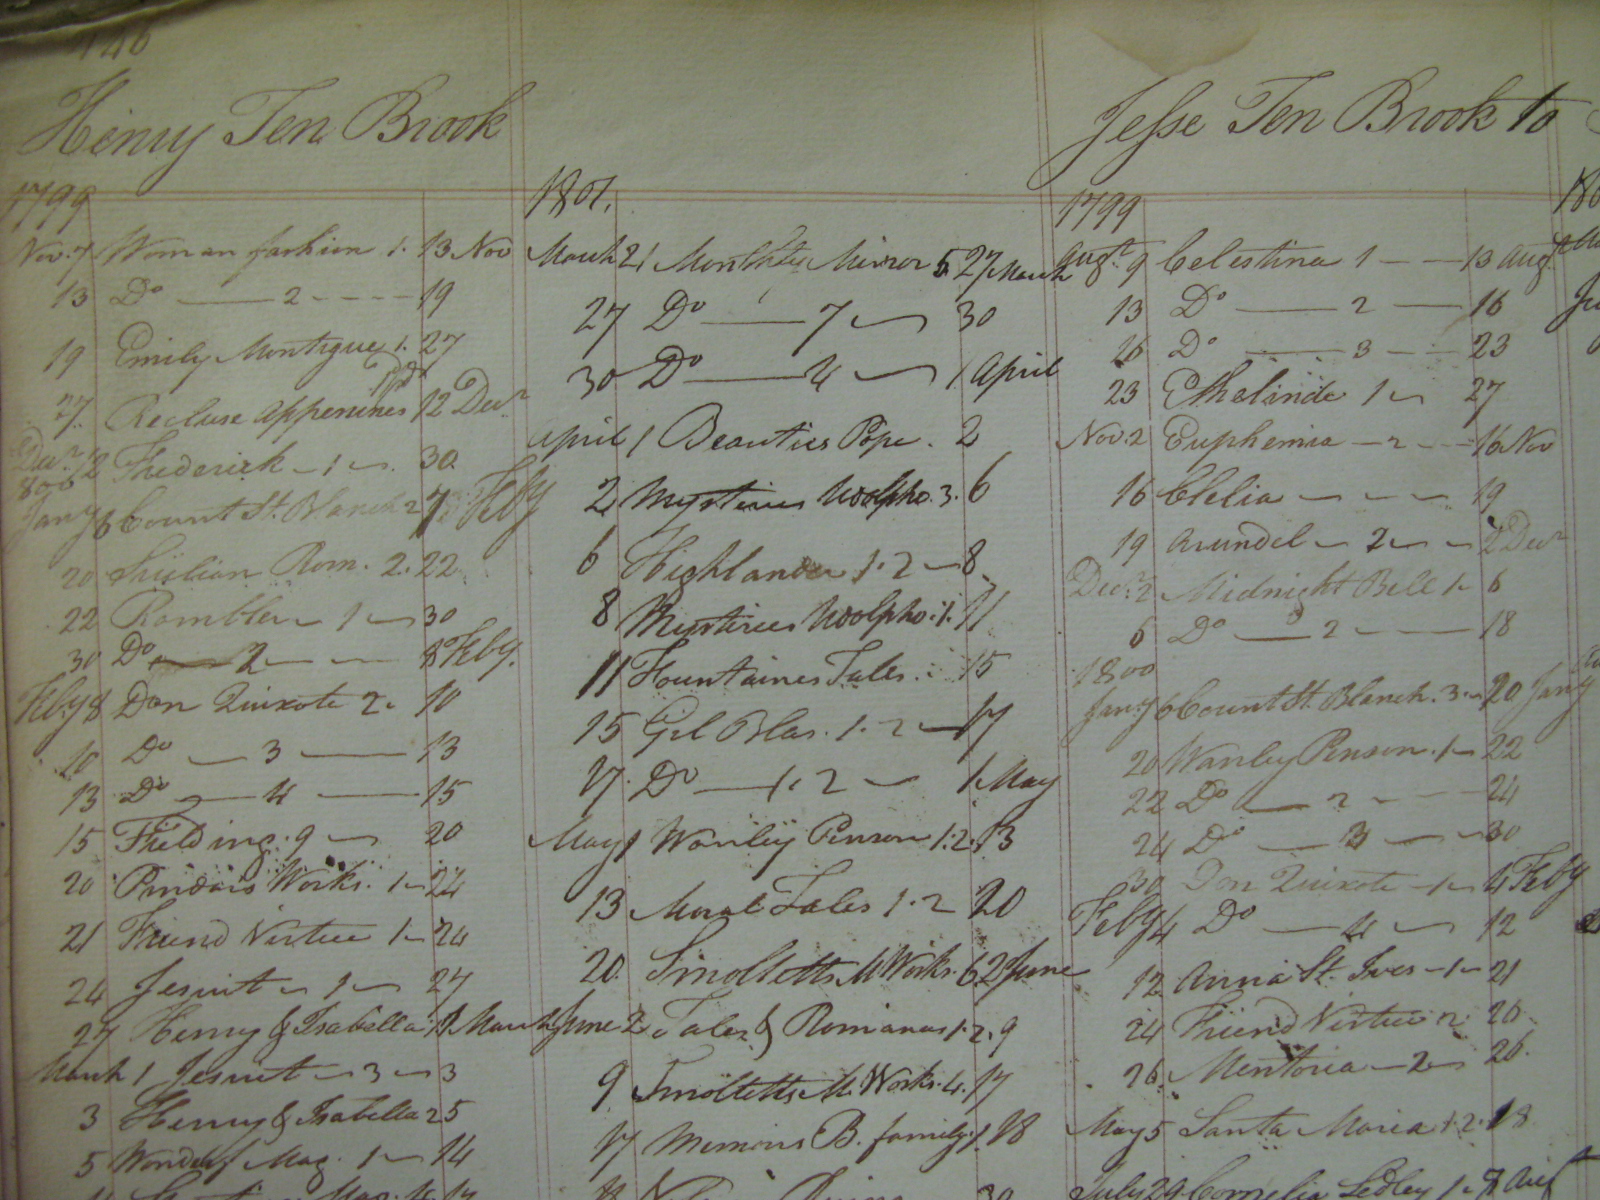 146
Henry Ten Brook
1799
Nov. 7 Woman fashion 1. 13 Nov
13 Do 2 19
19 Emily Montigue 1. 27
27 Recluse Appenines 12 Decr
Decr 12 Frederick 1 30
Jany 8 Count St. Blanch 2 7 Feby
20 Sicilian Rom. 2. 22
22 Rambler 1 30
30 Do 2 8 Feby.
Feby 8 Don Quixote 2. 10
10 Do 3 13
13 Do 4 15
15 Fielding. 9 20
20 Pindars Works. 1 24
21 Friend Virtue 1 24
24 Jesuit 1 27
27 Henry & Isabella 1 March
March 1 Jesuit 3 3
3 Henry & Isabella 2 5
5 Wonderf Mag. 1 14
1801.
March 21 Monthly Mirror 5 27 March
27 Do 7 30
30 Do 4 1 April
April 1 Beauties Pope. 2
2 Mysteries Udolpho. 3. 6
6 Highlander 1.2 8
8 Mysteries Udolpho. 1. 11
11 Fountaines Tales. 15
15 Gil Blas. 1.2 17
17. Do 1.2 1 May
May 1 Wanley Penson 1.2. 13
13 Moral Tales 1.2 20
20. Smolletts M Works. 6 2 June
June 2. Tales & Romances 1.2. 9
9 Smolletts M. Works. 4. 17
17 Memoirs B. family. 1. 18
Jesse Ten Brook to
1799
Augt. 9 Celestina 1 13 Augt
13 Do 2 16
16 Do 3 23
23 Ethelinde 1 27
Nov. 2 Euphemia 2 16 Nov
16 Clelia 19
19 Arundel 2 2 Decr
Decr. 2 Midnight Bell 1 6
6 Do 2 18
1800
Jany 6 Count St. Blanch. 3. 20 Jany
20 Wanley Penson. 1 22
22 Do 2 24
24 Do 3 30
30 Don Quixote 1 4 Feby
Feby 4 Do 4 12
12 Anna St. Ives 1 21
24 Friend Virtue 2. 26.
26. Mentoria 2 26.
May 5 Santa Maria 1.2. 18
July 29 Cornelia Sedley 1. 7 Aug